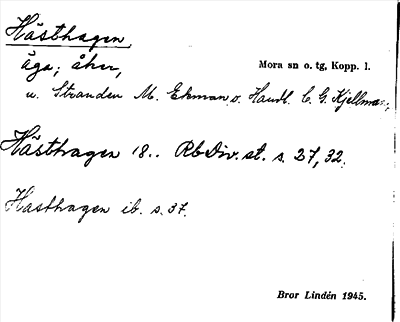 Hästhagen,
äga; åker,
Mora sn o. tg, Kopp. l.
u. Stranden M. Ekman o. Handl. C. G. Kjellman;
Hästhagen 18.. RbDiv. st. s. 27, 32.
Hästhagen ib. s. 37.
Bror Lindén 1945.